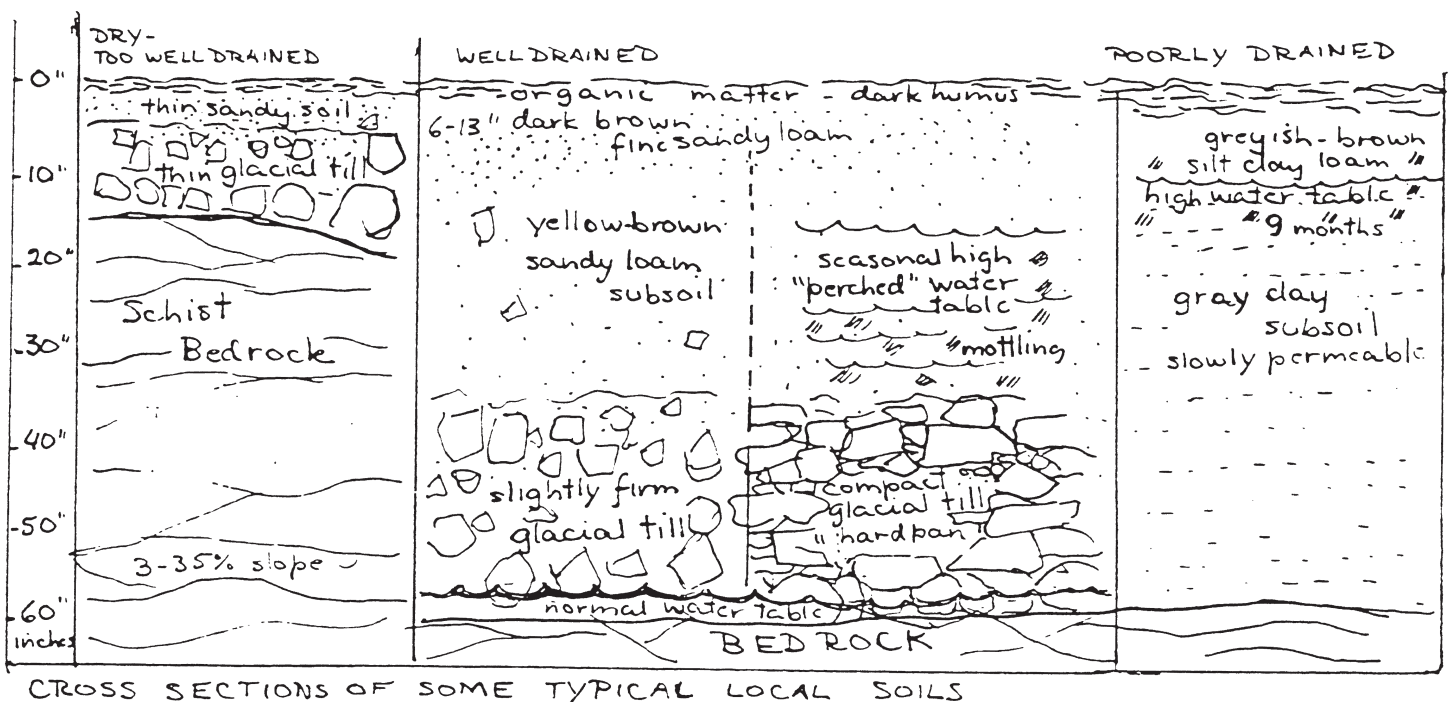 DRY-
TOO WELL DRAINED
WELL DRAINED
POORLY DRAINED
0"
10"
20"
30"
40"
50"
60"
inches
thin sandy soil
thin glacial till
Schist
Bedrock
3-35% slope
organic matter - dark humus
6-13" dark brown
fine sandy loam
yellow-brown
sandy loam
subsoil
slightly firm
glacial till
seasonal high
"perched" water
table
mottling
compact
glacial till
"hardpan"
normal water table
BEDROCK
greyish-brown
silt clay loam
high water table
9 months
gray clay
subsoil
slowly permeable
CROSS SECTIONS OF SOME TYPICAL LOCAL SOILS